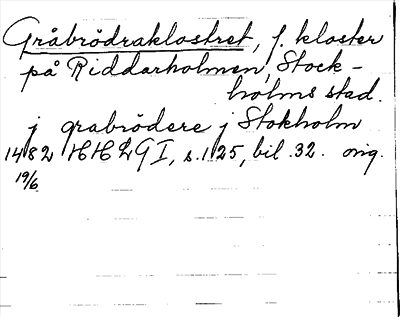 Gråbrödraklostret, f. kloster
på Riddarholmen, Stock-
holms stad.
j grabrödere j Stokholm
1482 HHLG I, s. 125, bil. 32. orig.
19/6